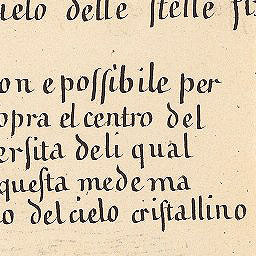 ielo delle stelle fi
on e poſſibile per
opra el centro del
erſita deli qual
queſta mede ma
o del cielo criſtallino